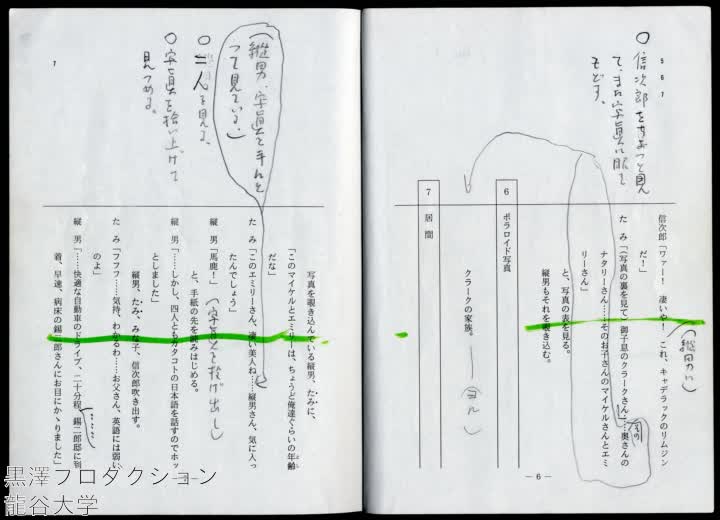 5 6 7
○信次郎をちょっと見
て、また写真に眼を
もどす。
信次郎「ワァー! 凄いや! これ、キャデラックのリムジン
だ!」
(縦男に)
たみ「(写真の裏を見て)御子息のクラークさん」…奥さんの
その
ナタリーさん……そのお子さんのマイケルさんとエミ
リーさん」
と、写真の表を見る。
縦男もそれを覗き込む。
6 ポラロイド写真
クラークの家族。
7 居間
― 6 ―
7
(縦男、写真を手にと
って見ている。)
○二人を見る、
○写真を拾い上げて
見つめる。
写真を覗き込んでいる縦男、たみに、
「このマイケルとエミリーは、ちょうど俺達ぐらいの年齢
だな」
たみ「このエミリーさん、凄い美人ね……縦男さん、気に入っ
たんでしょう」
縦男「馬鹿!」(写真を投げ出し)
と、手紙の先を読みはじめる。
縦男「……しかし、四人ともカタコトの日本語を話すのでホッ
としました」
縦男、たみ、みな子、信次郎吹き出す。
たみ「フフフ……気持、わかるわ……お父さん、英語には弱い
のよ」
縦男「……快適な自動車のドライブ、二十分程、錫二郎邸に到
着、早速、病床の錫二郎さんにお目にかゝりました」
黒澤プロダクション
龍谷大学